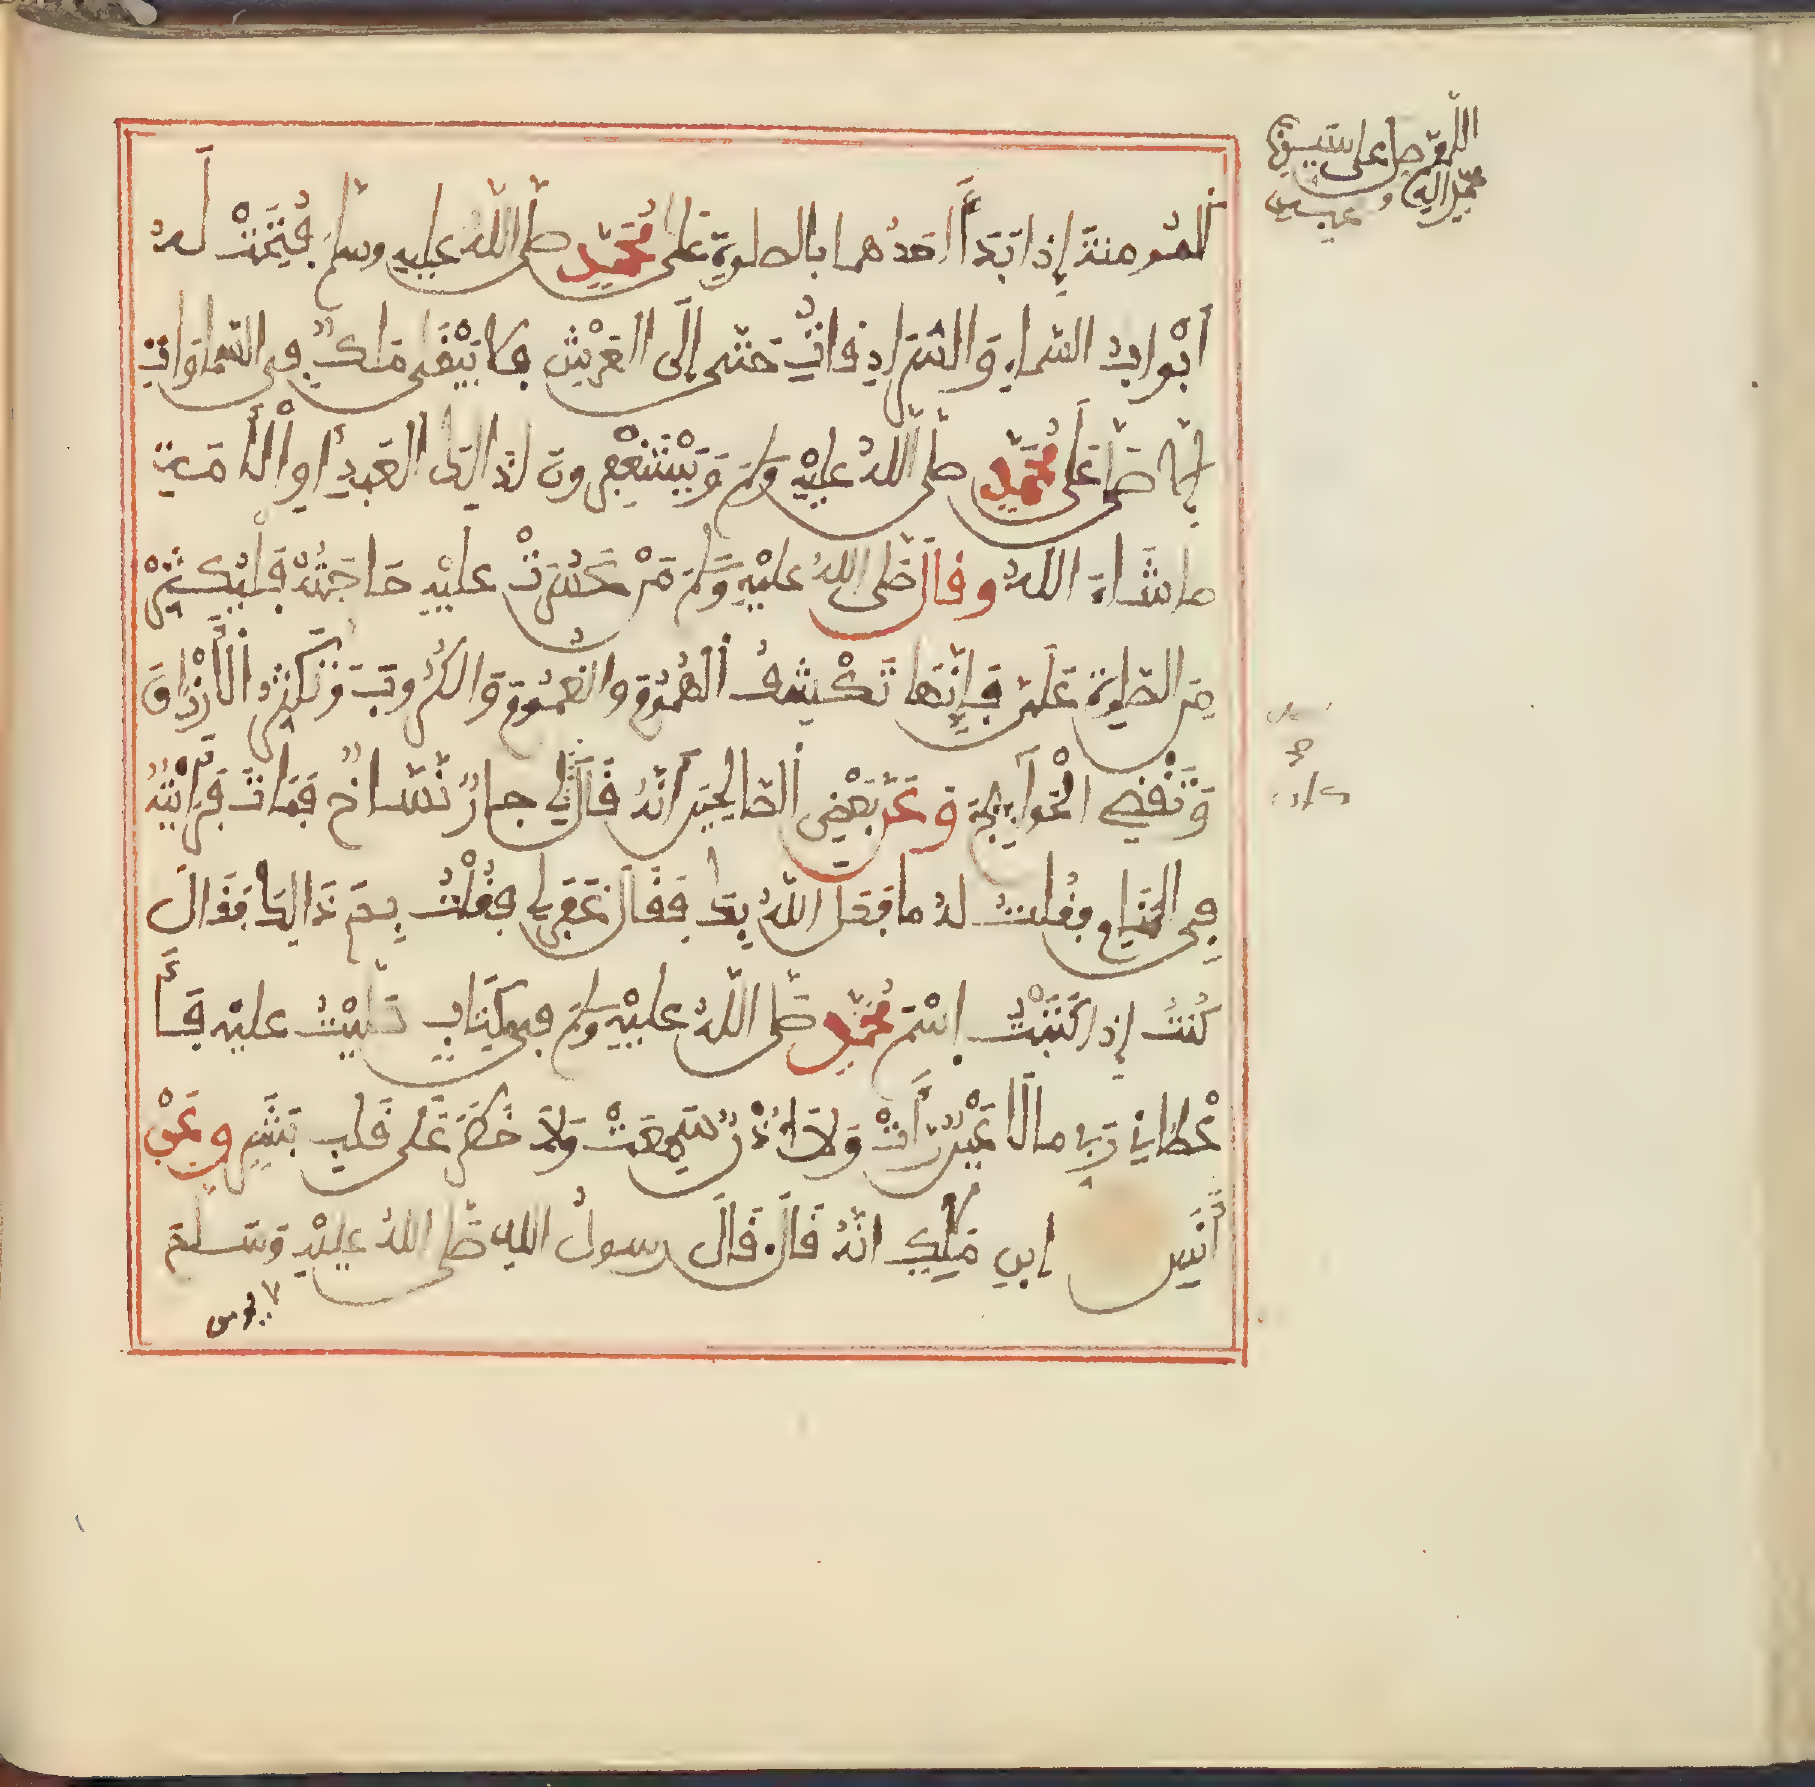 المؤمنة إذا بدأ أحدهما بالصلوة على محمد صلى الله عليه وسلم فتحت له
أبواب السماء والسرادقات حتى إلى العرش فلا يبقى ملك في السماوات
إلا صلى على محمد صلى الله عليه وسلم ويستغفرون لذالك العبد أو الأمة
ما شاء الله وقال صلى الله عليه وسلم من عسرت عليه حاجته فليكثر
من الصلوة علي فإنها تكشف الهموم والغموم والكروب وتكثر الأرزاق
وتقضي الحوآئج وعن بعض الصالحين أنه قال لي جار نساخ فمات فرأيته
في المنام فقلت له ما فعل الله بك فقال غفر لي فقلت بم ذالك فقال
كنت إذا كتبت اسم محمد صلى الله عليه وسلم في كتاب صليت عليه فأ
عطاني ربي ما لا عين رأت ولا أذن سمعت ولا خطر على قلب بشر وعن
أنس ابن ملك أنه قال قال رسول الله صلى الله عليه وسلم
اللهم صل على سيدنا
محمد اله و